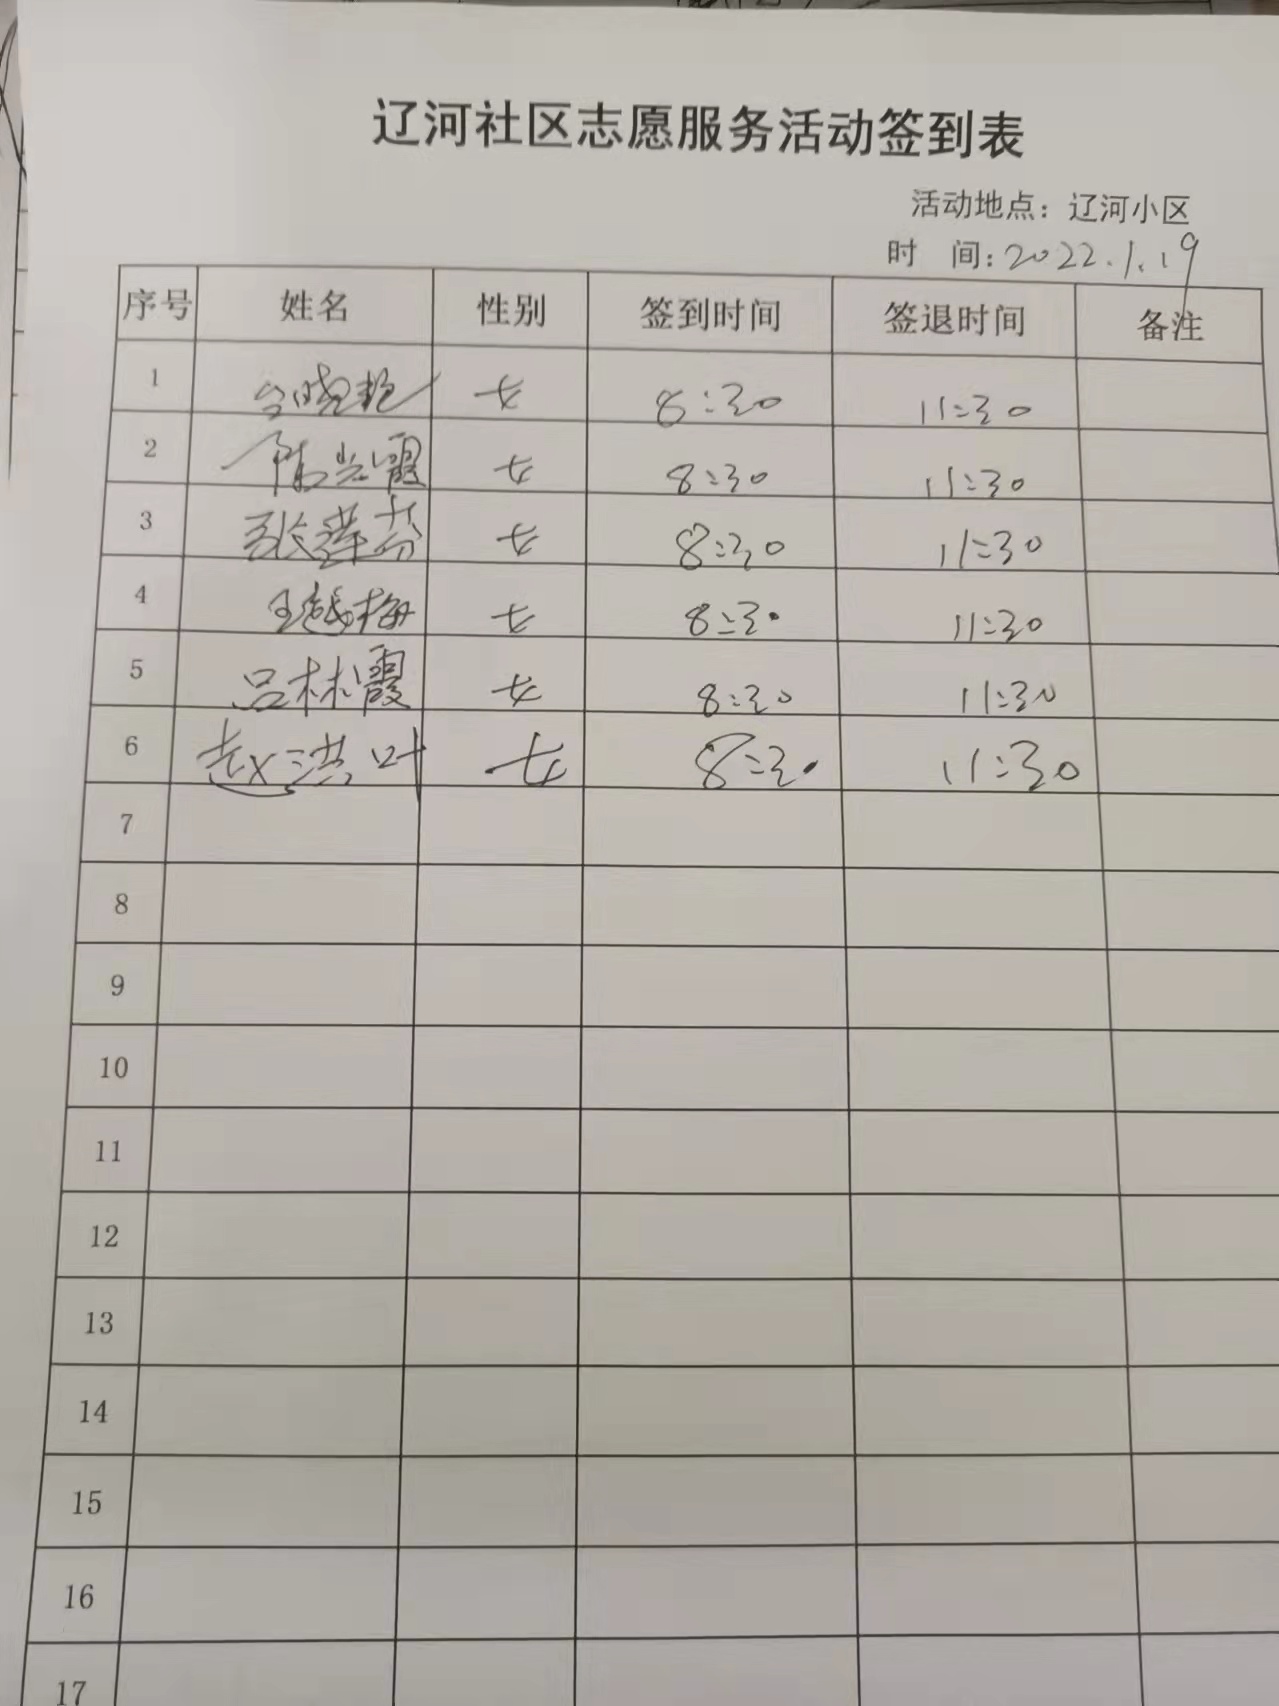 辽河社区志愿服务活动签到表
活动地点：辽河小区
时 间：2022.1.19
序号 姓名 性别 签到时间 签退时间 备注
1 女 8:30 11:30
2 陈光霞 女 8:30 11:30
3 张莲芬 女 8:30 11:30
4 王越梅 女 8:30 11:30
5 吕林霞 女 8:30 11:30
6 赵洪叶 女 8:30 11:30
7
8
9
10
11
12
13
14
15
16
17